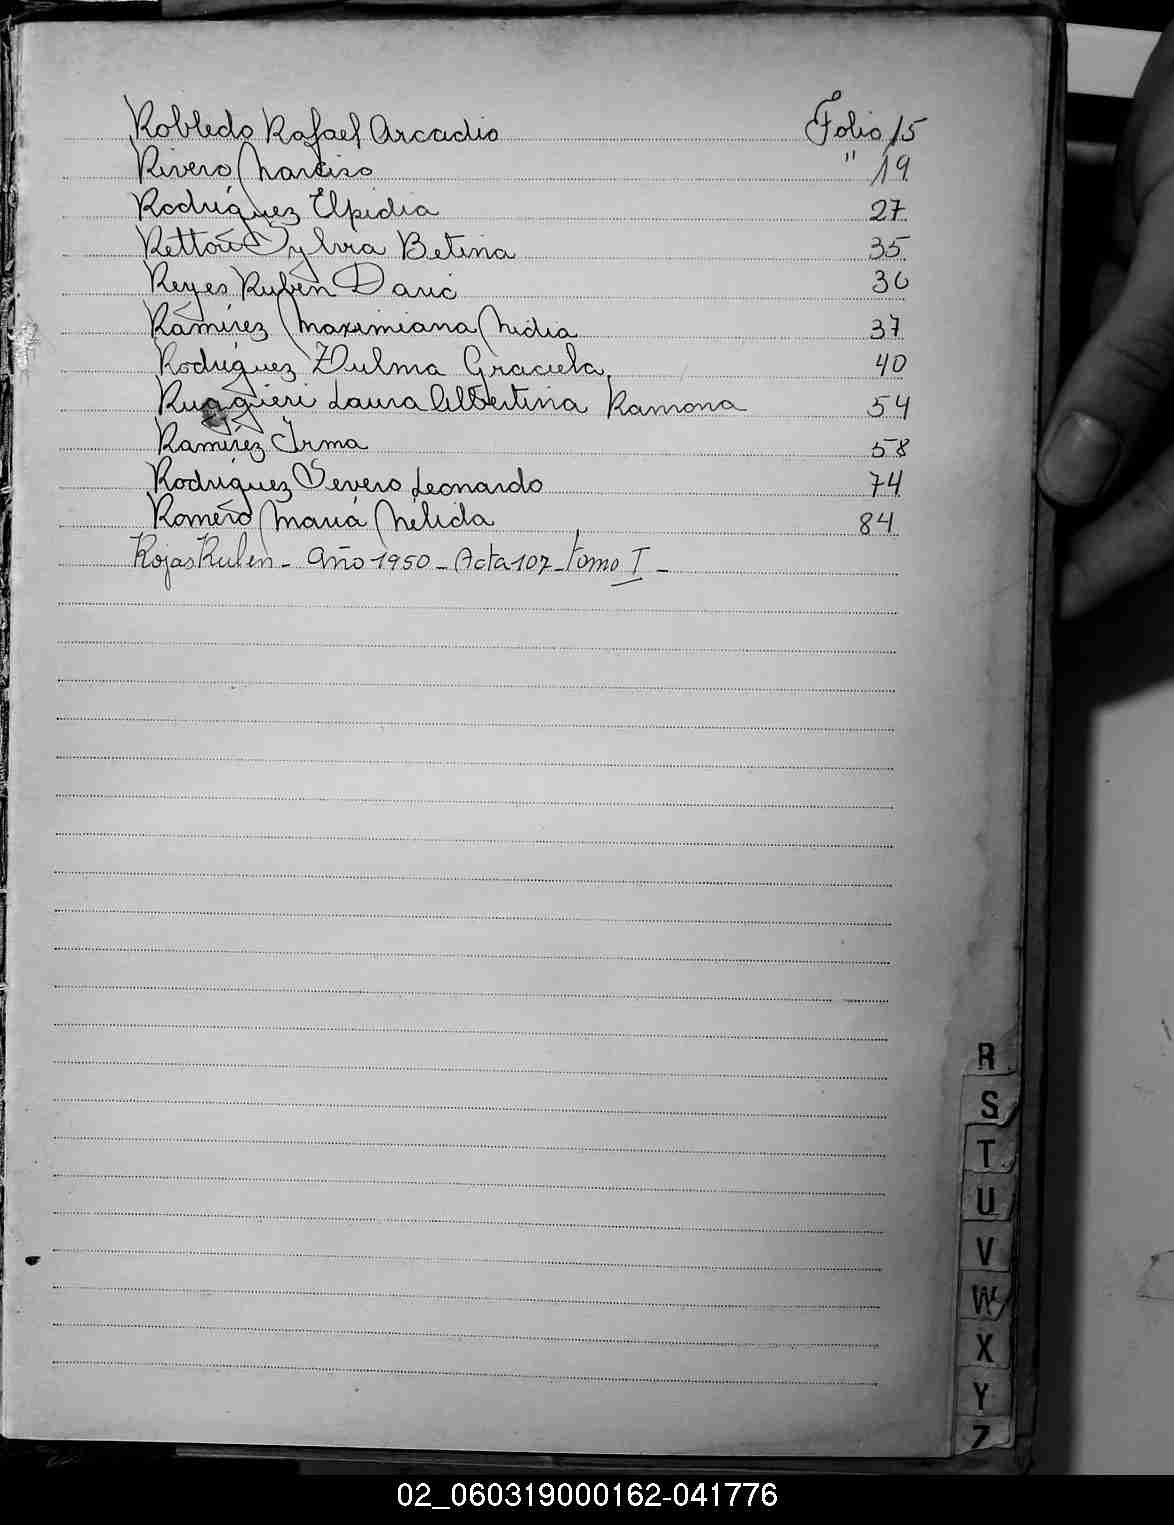 Robledo Rafael Arcadio Folio 15
Rivero Narciso " 19
Rodríguez Elpidia 27
Rettori Sylvia Betina 35
Reyes Rubén Dario 36
Ramírez Maximiana Nidia 37
Rodríguez Zulma Graciela 40
Ruggieri Laura Albertina Ramona 54
Ramírez Irma 58
Rodríguez Severo Leonardo 74
Romero María Nélida 84
Rojas Ruben - Año 1950 - Acta 107 - tomo I -
R
S
T
U
V
W
X
Y
Z
02_060319000162-041776